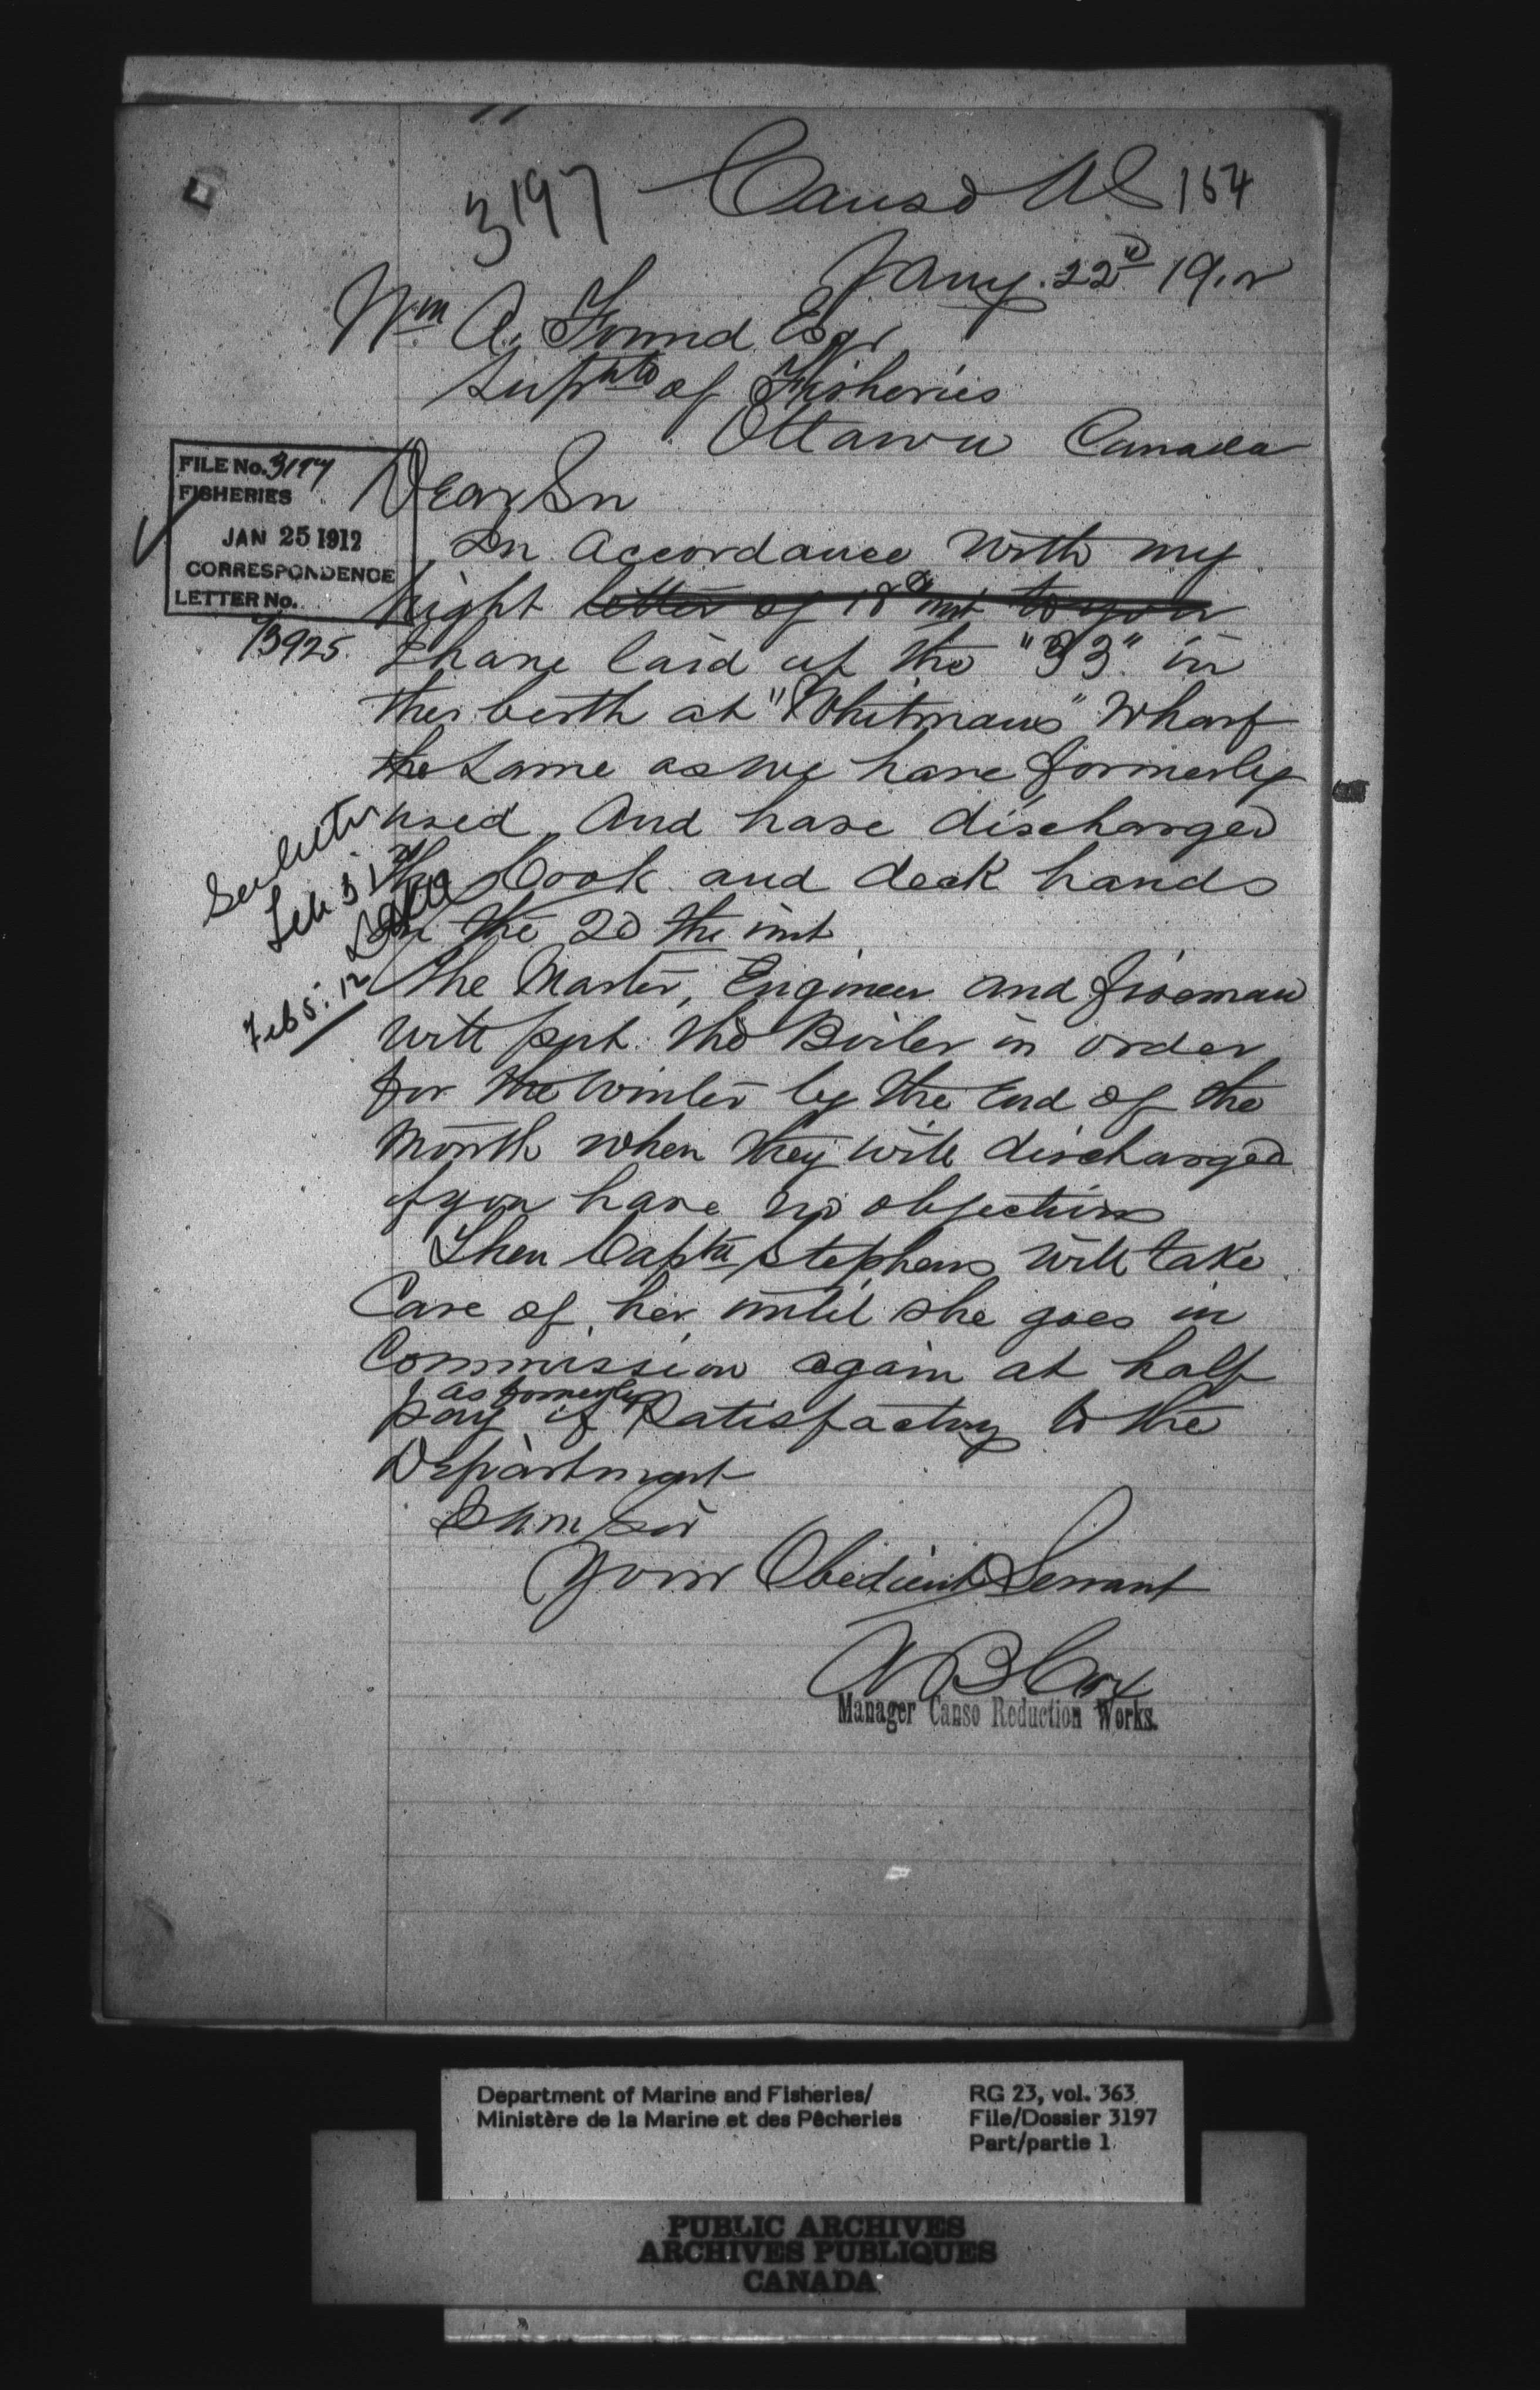 3197
Canso NS 154
Jany. 22nd 1912
Wm A. Found Esqr
Suptnt of Fisheries
Ottawa Canada
FILE No. 3197
FISHERIES
JAN 25 1912
CORRESPONDENCE
LETTER No.
73925.
Dear Sir
In accordance with my
night letter of 18th inst to you
I have laid up the "33" in
the berth at "Whitmans" Wharf
the same as we have formerly
used, and have discharged
the Cook and deck hands
on the 20 th inst
See letter
Feb 3/12
Feb 5. 12
The Master, Engineer and fireman
will put the Boiler in order
for the winter by the End of the
Month when they will discharged
if you have no objections
Then Capt Stephens will take
Care of her until she goes in
Commission again at half
pay as formerly if Satisfactory to the
Department
I am sir
Your Obedient Servant
A B Cox
Manager Canso Reduction Works.
Department of Marine and Fisheries/
Ministère de la Marine et des Pêcheries
RG 23, vol. 363
File/Dossier 3197
Part/partie 1
PUBLIC ARCHIVES
ARCHIVES PUBLIQUES
CANADA